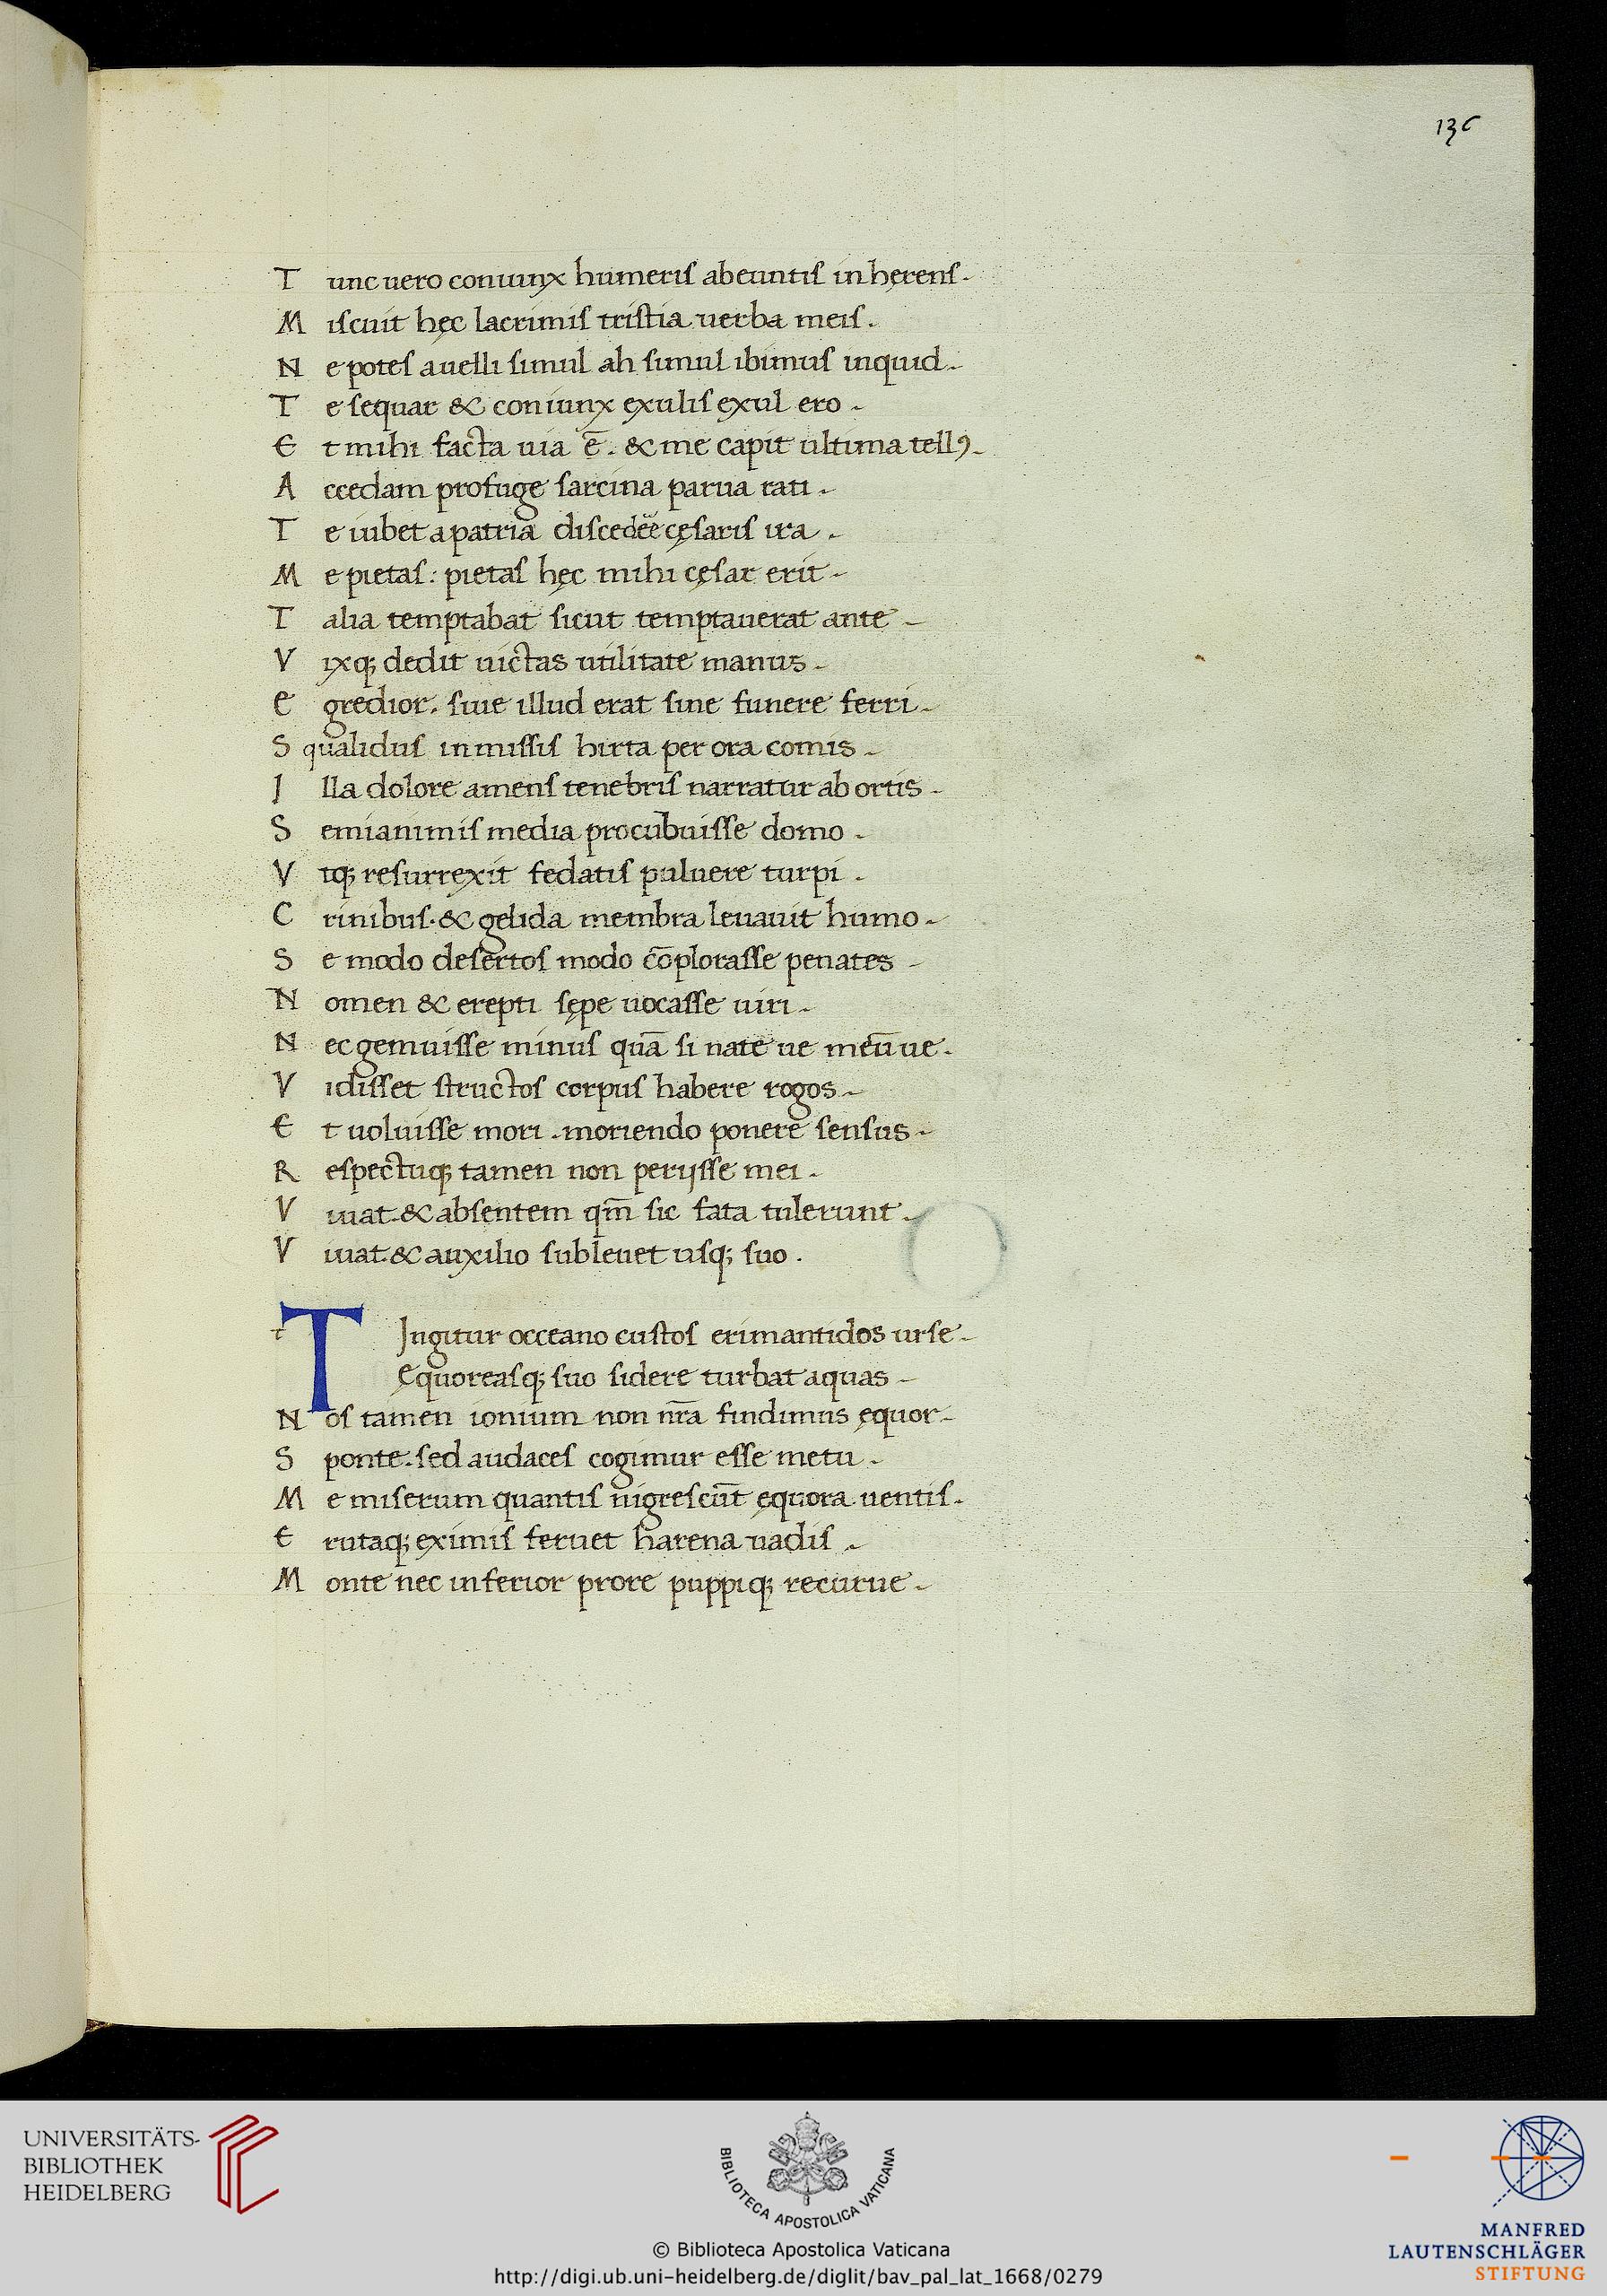 136
Tunc uero coniunx humeris abeuntis inherens.
Miscuit hęc lacrimis tristia uerba meis.
Ne potes auelli simul ah simul ibimus inquid.
Te sequar & coniunx exulis exul ero.
Et mihi facta uia ē. & me capit ultima tellꝰ.
Accedam profuge sarcina parua rati.
Te iubet a patria discedere cęsaris ira.
Me pietas: pietas hęc mihi cęsar erit.
Talia temptabat sicut temptauerat ante
Vixq; dedit uictas utilitate manus.
Egredior. siue illud erat sine funere ferri.
Squalidus inmissis hirta per ora comis.
Illa dolore amens tenebris narratur abortis.
Semianimis media procubuisse domo.
Vtq; resurrexit fedatis puluere turpi.
Crinibus. & gelida membra leuauit humo.
Se modo desertos modo cōplorasse penates
Nomen & erepti sępe uocasse uiri.
Nec gemuisse minus quā si nate ue meū ue.
Vidisset structos corpus habere rogos.
Et uoluisse mori. moriendo ponere sensus.
Respectuq; tamen non perijsse mei.
Viuat. & absentem qm̄ sic fata tulerunt.
Viuat. & auxilio subleuet usq; suo.
t
TIngitur occeano custos erimantidos urse.
Ęquoreasq; suo sidere turbat aquas
Nos tamen ionium non nr̄a findimus ęquor.
Sponte. sed audaces cogimur esse metu.
Me miserum quantis nigrescūt ęquora uentis.
Erutaq; eximis feruet harena uadis.
Monte nec inferior prore puppiq; recurue.
UNIVERSITÄTS-
BIBLIOTHEK
HEIDELBERG
BIBLIOTECA APOSTOLICA VATICANA
© Biblioteca Apostolica Vaticana
http://digi.ub.uni-heidelberg.de/diglit/bav_pal_lat_1668/0279
MANFRED
LAUTENSCHLÄGER
STIFTUNG